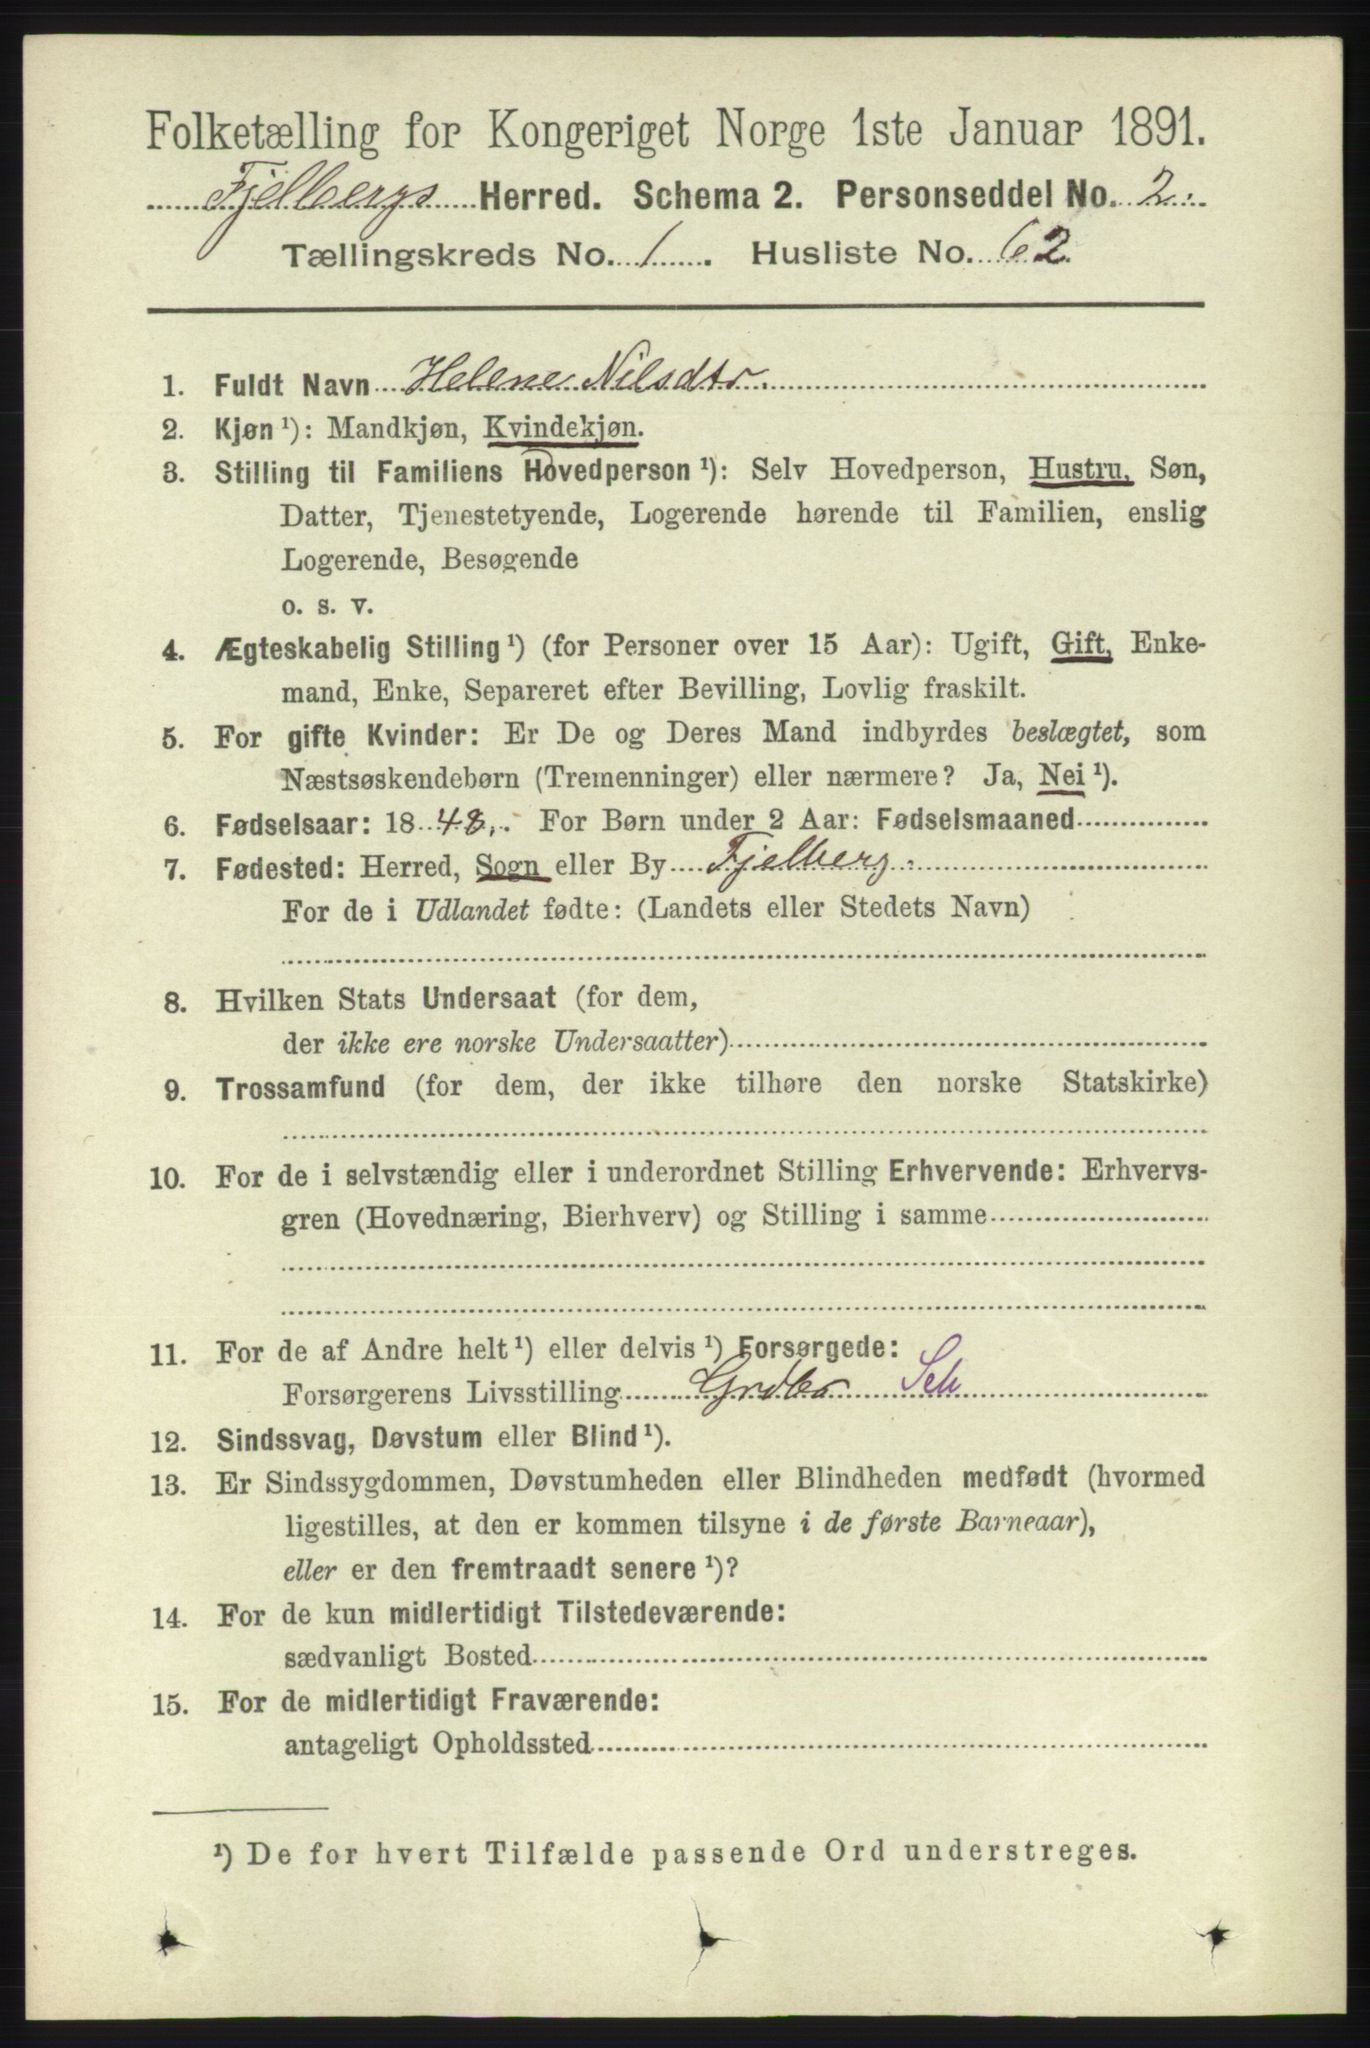 Folketælling for Kongeriget Norge 1ste Januar 1891.
Fjelbergs Herred. Schema 2. Personseddel No. 2.
Tællingskreds No. 1. Husliste No. 62
1. Fuldt Navn Helene Nilsdtr.
2. Kjøn¹): Mandkjøn, Kvindekjøn.
3. Stilling til Familiens Hovedperson¹): Selv Hovedperson, Hustru, Søn,
Datter, Tjenestetyende, Logerende hørende til Familien, enslig
Logerende, Besøgende
o. s. v.
4. Ægteskabelig Stilling¹) (for Personer over 15 Aar): Ugift, Gift, Enke-
mand, Enke, Separeret efter Bevilling, Lovlig fraskilt.
5. For gifte Kvinder: Er De og Deres Mand indbyrdes beslægtet, som
Næstsøskendebørn (Tremenninger) eller nærmere? Ja, Nei¹).
6. Fødselsaar: 1848. For Børn under 2 Aar: Fødselsmaaned
7. Fødested: Herred, Sogn eller By Fjelberg.
For de i Udlandet fødte: (Landets eller Stedets Navn)
8. Hvilken Stats Undersaat (for dem,
der ikke ere norske Undersaatter)
9. Trossamfund (for dem, der ikke tilhøre den norske Statskirke)
10. For de i selvstændig eller i underordnet Stilling Erhvervende: Erhvervs-
gren (Hovednæring, Bierhverv) og Stilling i samme
11. For de af Andre helt¹) eller delvis¹) Forsørgede:
Forsørgerens Livsstilling Grdbr Sel
12. Sindssvag, Døvstum eller Blind¹).
13. Er Sindssygdommen, Døvstumheden eller Blindheden medfødt (hvormed
ligestilles, at den er kommen tilsyne i de første Barneaar),
eller er den fremtraadt senere¹)?
14. For de kun midlertidigt Tilstedeværende:
sædvanligt Bosted
15. For de midlertidigt Fraværende:
antageligt Opholdssted
¹) De for hvert Tilfælde passende Ord understreges.